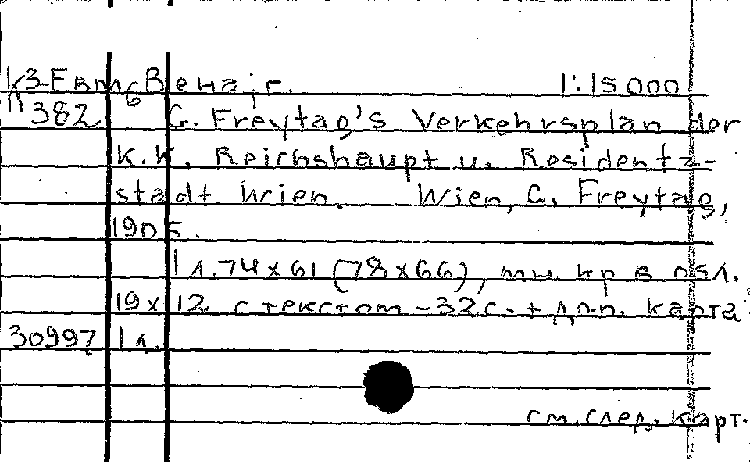 К3-Евт-6 Вена, г. 1:15000
П 382 G. Freytag's Verkehrsplan der
K.K. Reichshaupt u. Residenz-
stadt Wien. Wien, G. Freytag,
1905.
1 л. 74x61 (78x66), мн. кр в обл.
19x12 с текстом - 32 с. + доп. карта
30997 1 л.
см. след. карт.